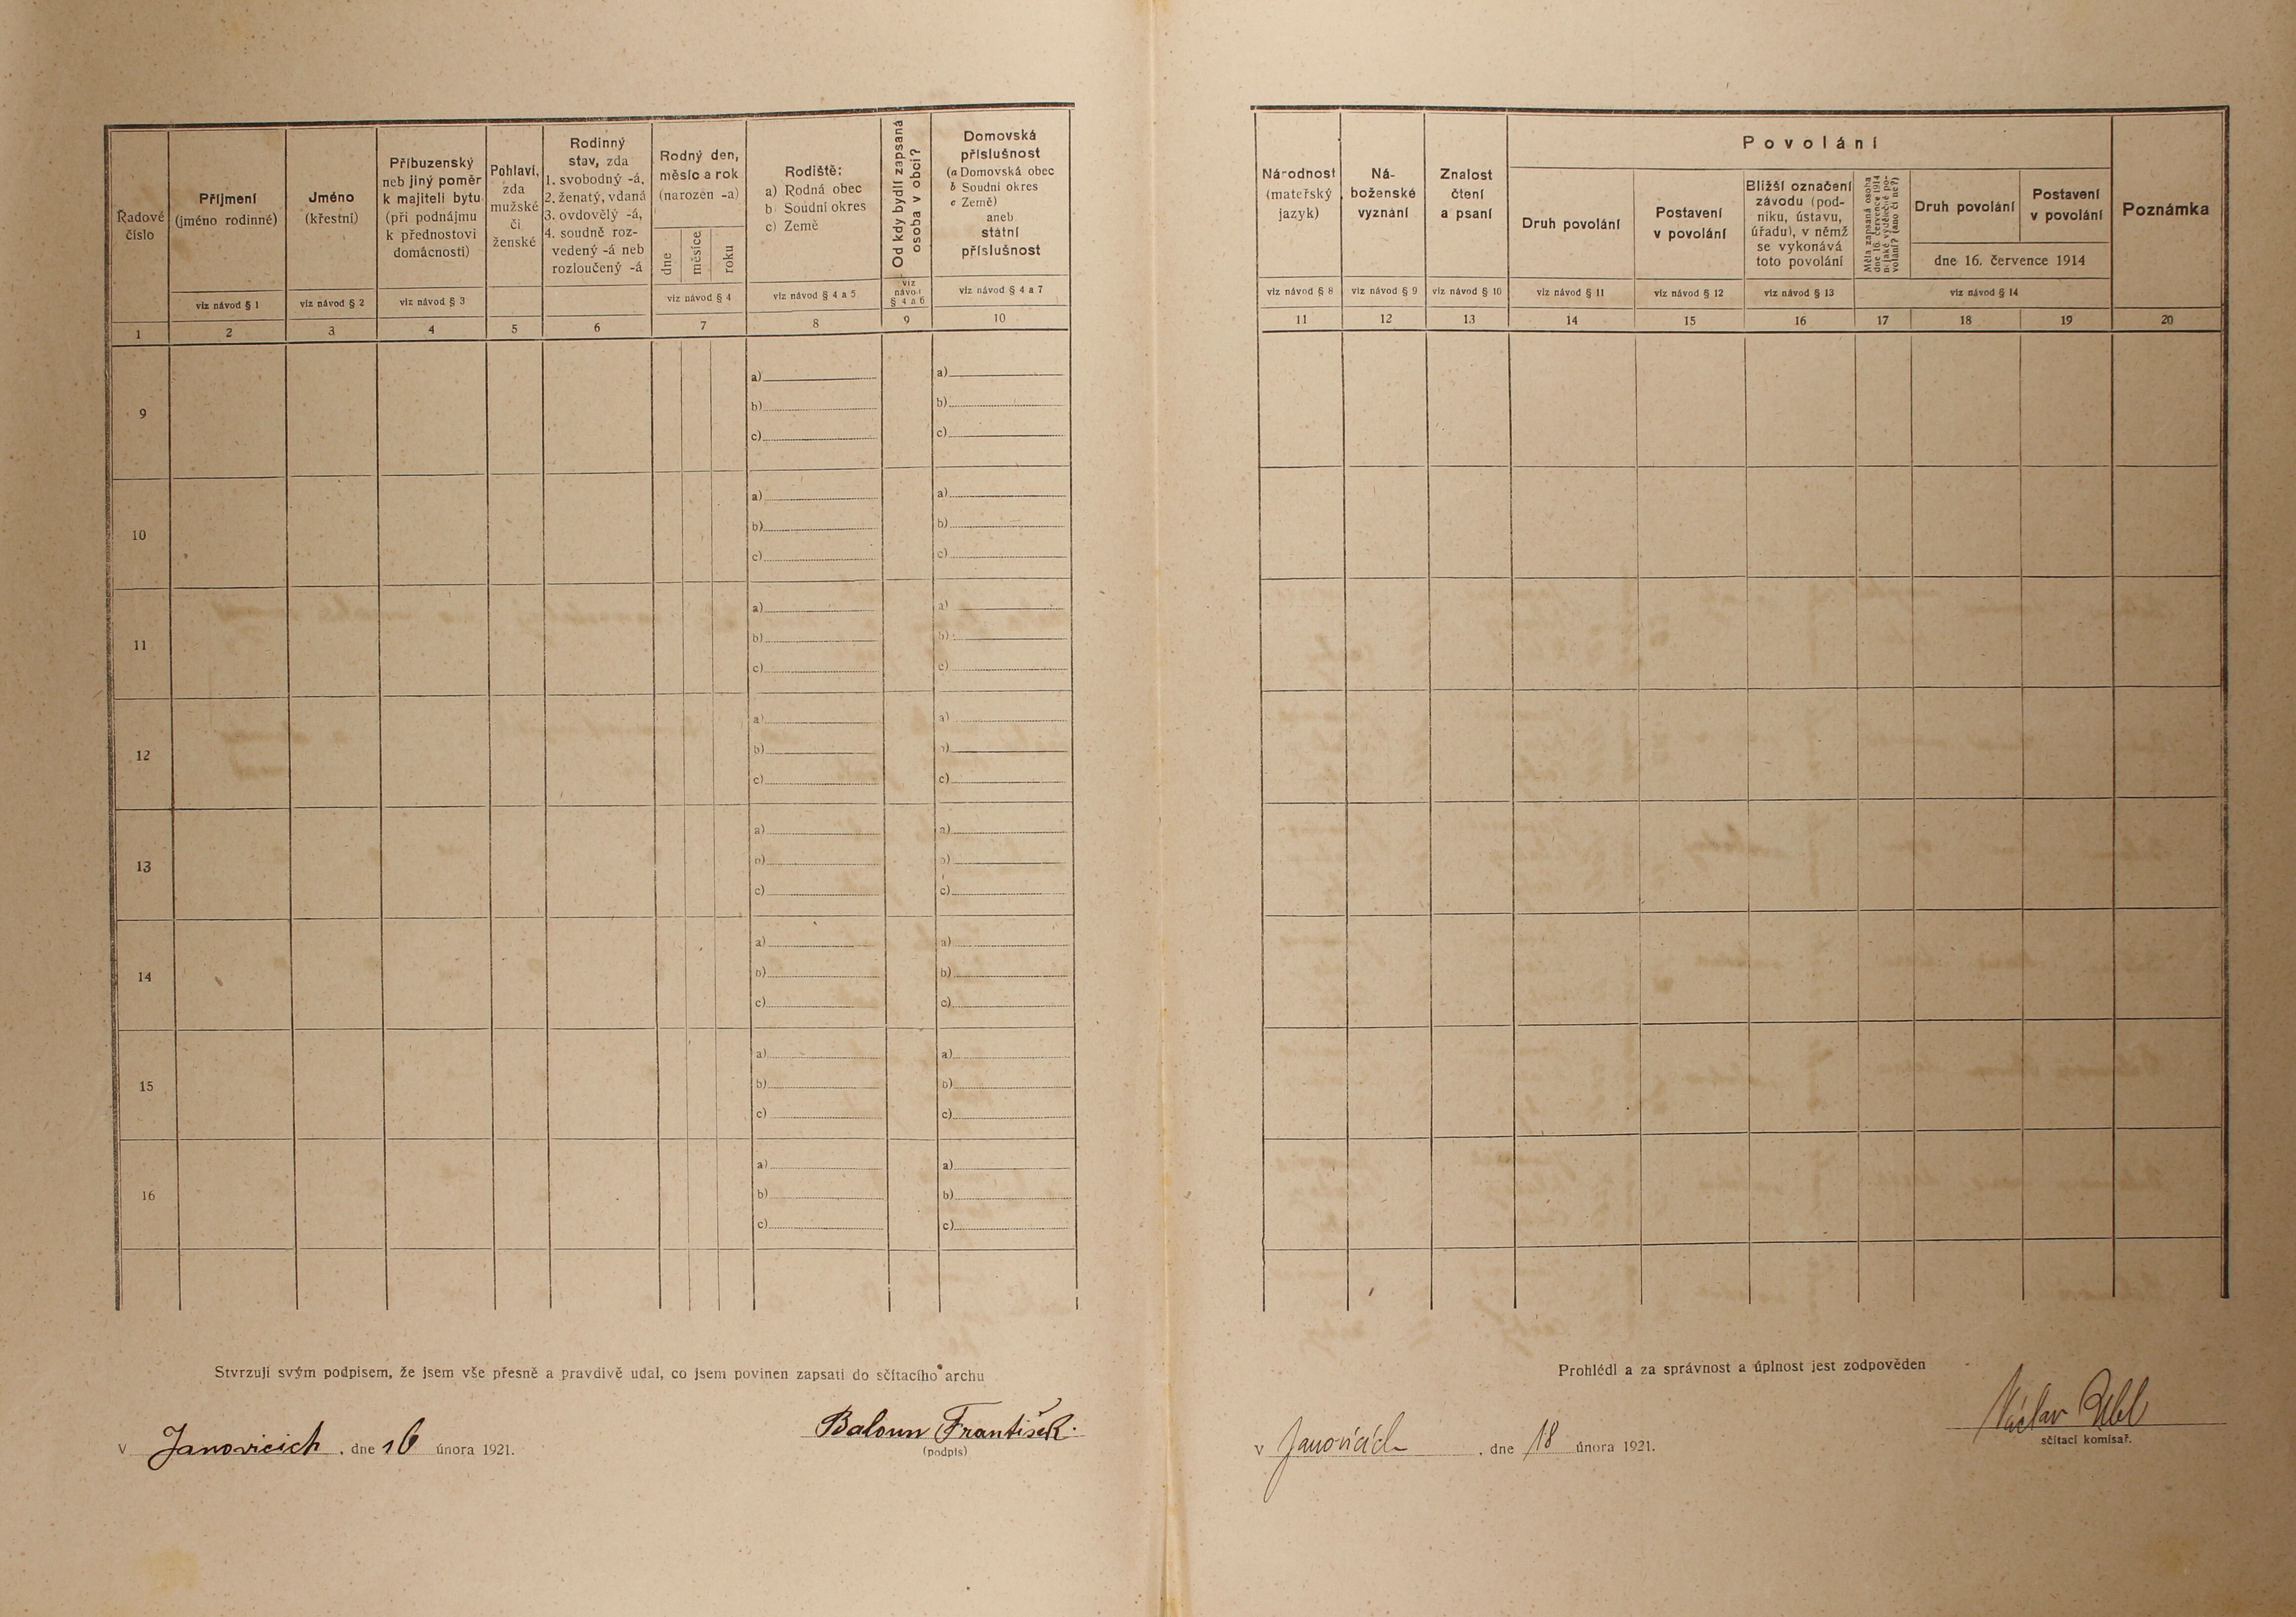 Řadové
číslo
Příjmení
(jméno rodinné)
viz návod § 1
Jméno
(křestní)
viz návod § 2
Příbuzenský
neb jiný poměr
k majiteli bytu
(při podnájmu
k přednostovi
domácnosti)
viz návod § 3
Pohlaví,
zda
mužské
či
ženské
Rodinný
stav, zda
1. svobodný -á,
2. ženatý, vdaná
3. ovdovělý -á,
4. soudně roz-
vedený -á neb
rozloučený -á
Rodný den,
měsíc a rok
(narozen -a)
dne
měsíce
roku
viz návod § 4
Rodiště:
a) Rodná obec
b) Soudní okres
c) Země
viz návod § 4 a 5
Od kdy bydlí zapsaná
osoba v obci?
viz
návod
§ 4 a 6
Domovská
příslušnost
(a Domovská obec
b Soudní okres
c Země)
aneb
státní
příslušnost
viz návod § 4 a 7
1 2 3 4 5 6 7 8 9 10
9
a) a)
b) b)
c) c)
10
a) a)
b) b)
c) c)
11
a) a)
b) b)
c) c)
12
a) a)
b) b)
c) c)
13
a) a)
b) b)
c) c)
14
a) a)
b) b)
c) c)
15
a) a)
b) b)
c) c)
16
a) a)
b) b)
c) c)
Stvrzuji svým podpisem, že jsem vše přesně a pravdivě udal, co jsem povinen zapsati do sčítacího archu
Baloun František.
(podpis)
V Janovicich, dne 16 února 1921.
Národnost
(mateřský
jazyk)
viz návod § 8
Ná-
boženské
vyznání
viz návod § 9
Znalost
čtení
a psaní
viz návod § 10
Povolání
Druh povolání
viz návod § 11
Postavení
v povolání
viz návod § 12
Bližší označení
závodu (pod-
niku, ústavu,
úřadu), v němž
se vykonává
toto povolání
viz návod § 13
Měla zapsaná osoba
dne 16. července 1914
nějaké výdělečné po-
volání? (ano či ne?)
Druh povolání
Postavení
v povolání
dne 16. července 1914
viz návod § 14
Poznámka
11 12 13 14 15 16 17 18 19 20
Prohlédl a za správnost a úplnost jest zodpověden
Václav
sčítací komisař.
V Janovicích, dne 18 února 1921.